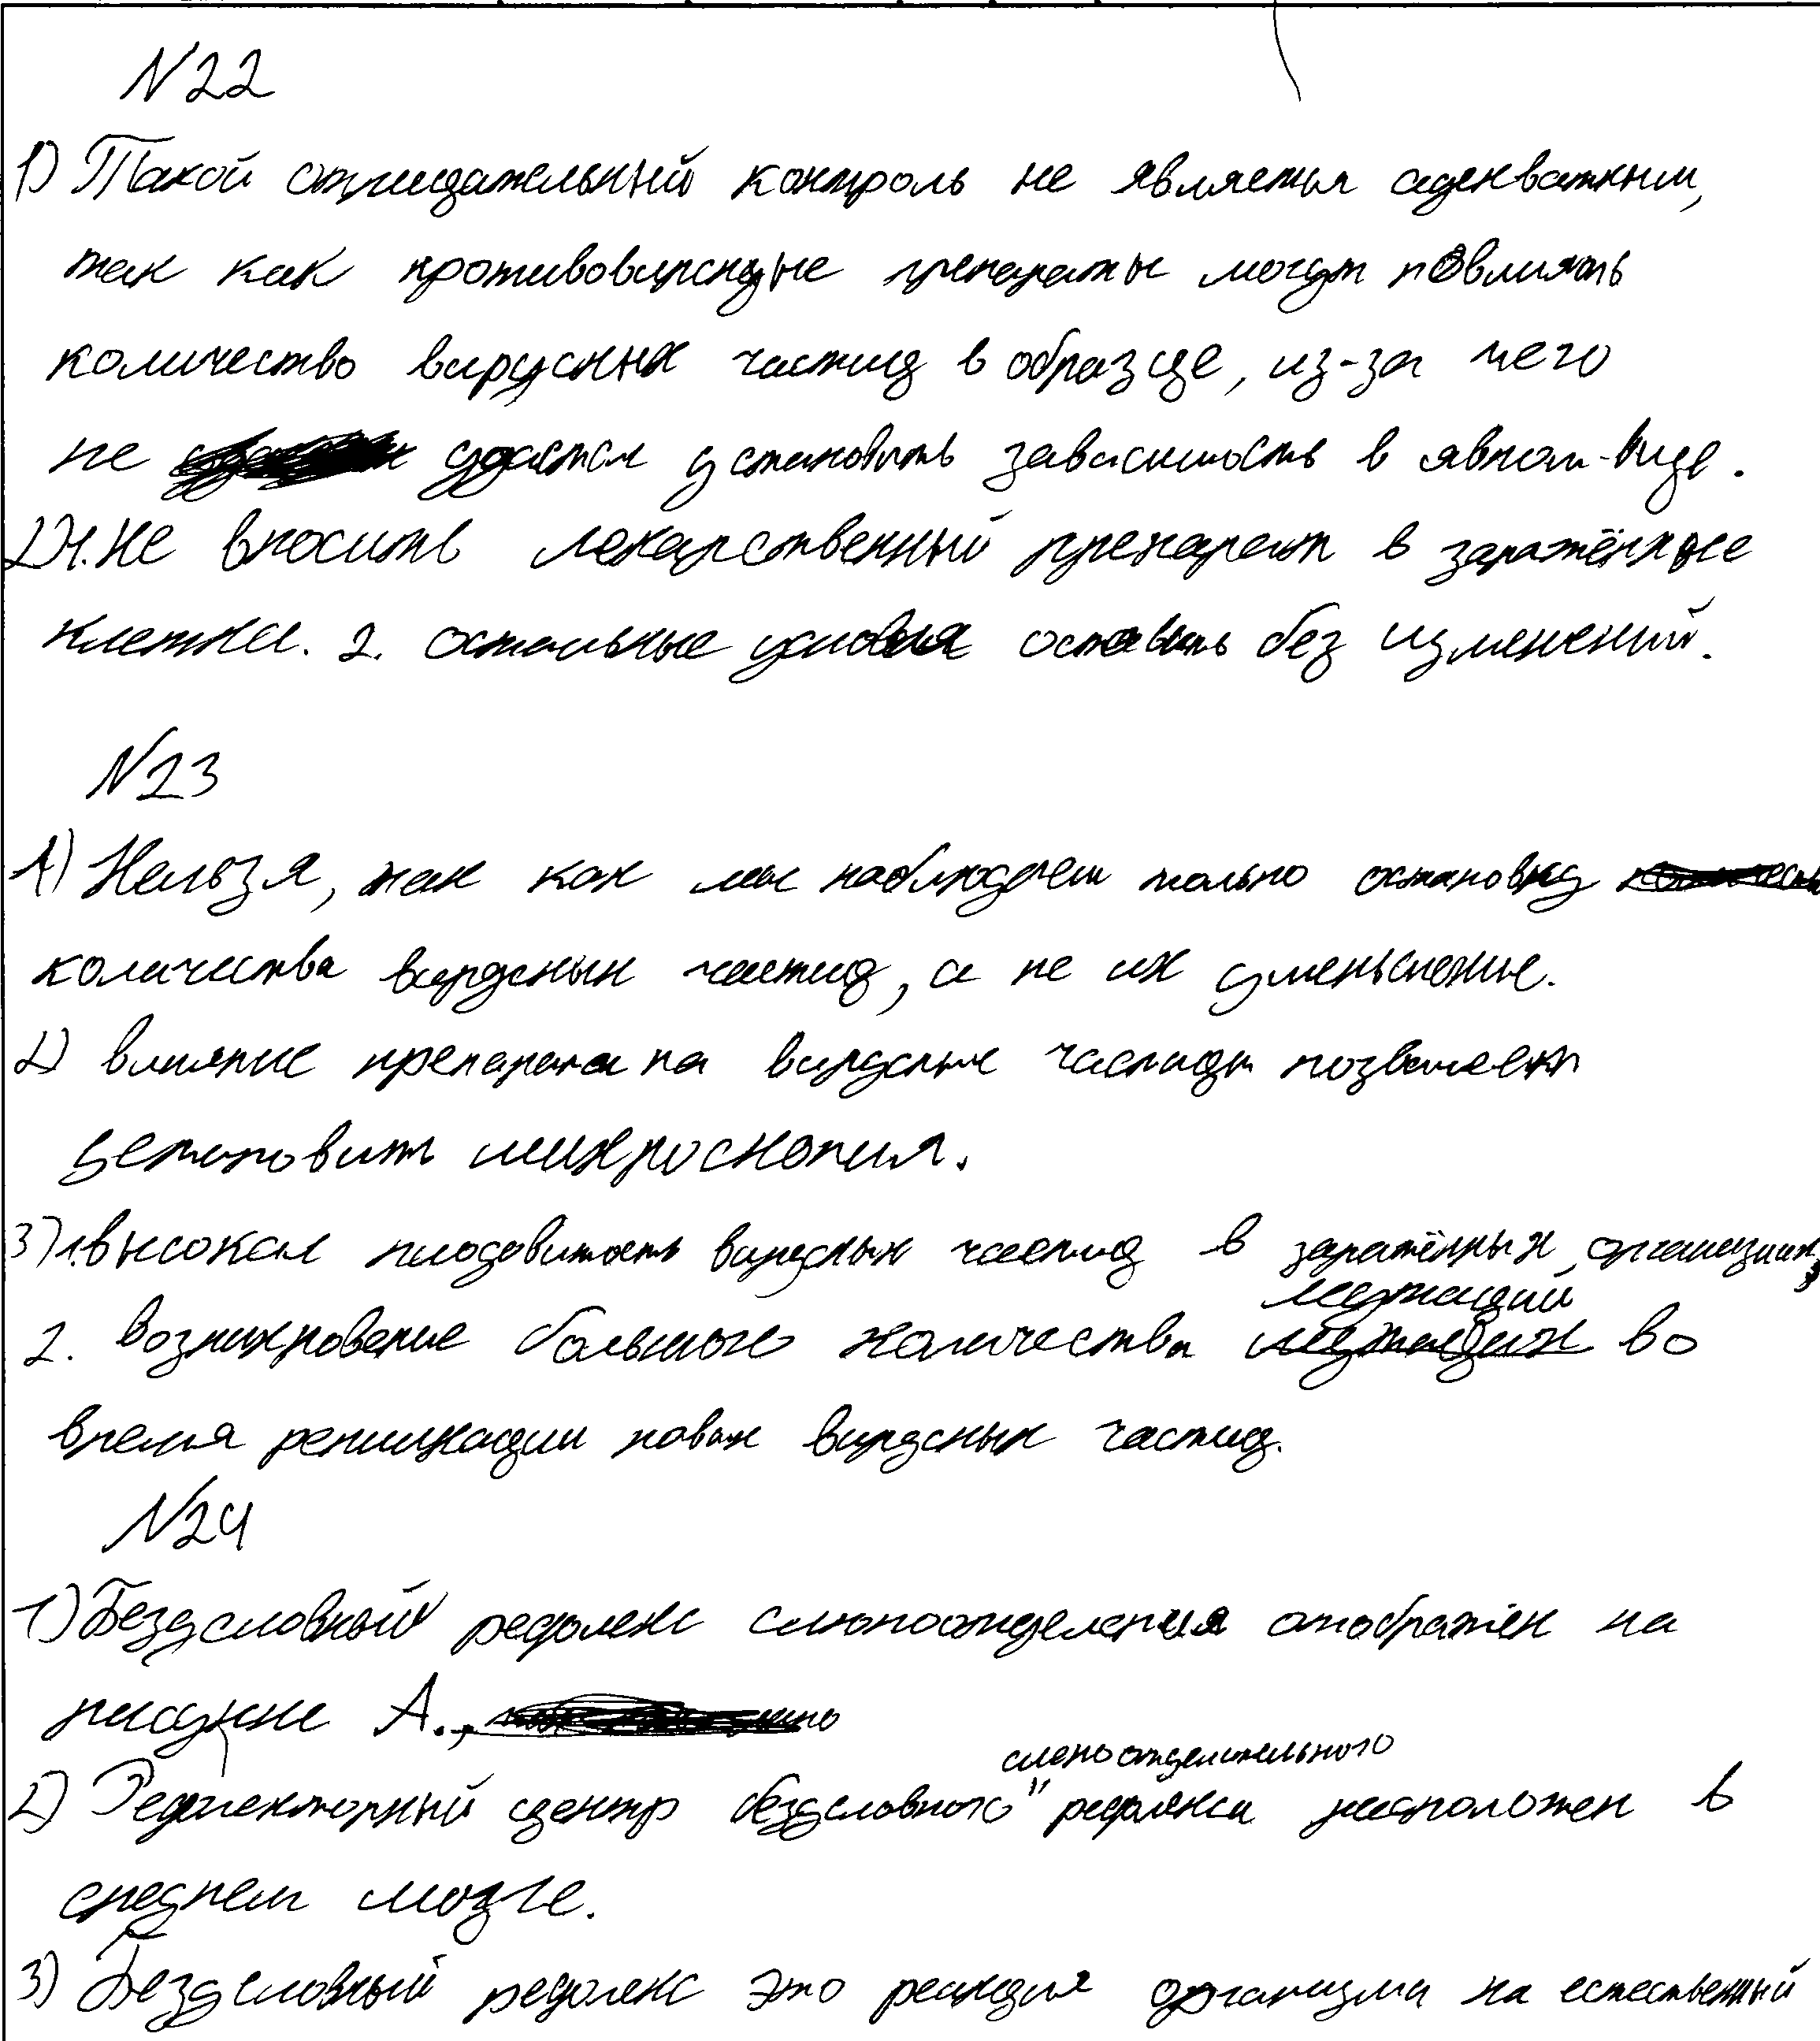 N22
1) Такой отрицательный контроль не является адекватным,
так как противовирусные препараты могут повлиять
количество вирусных частиц в образце, из-за чего
не удастся установить зависимость в явном виде.
2) 1. Не вносить лекарственный препарат в заражённые
клетки. 2. остальные условия оставить без изменений.
N23
1) Нельзя, так как мы наблюдаем только остановку
количества вирусных частиц, а не их уменьшение.
2) влияние препарата на вирусные частицы позволяет
установить микроскопия.
3) 1. высокая плодовитость вирусных частиц в заражённых организмах,
2. возникновение большого количества мутаций во
время репликации новых вирусных частиц.
N24
1) Безусловный рефлекс слюноотделения отображён на
рисунке А.,
2) Рефлекторный центр безусловного слюноотделительного рефлекса расположен в
среднем мозге.
3) Безусловный рефлекс это реакция организма на естественный